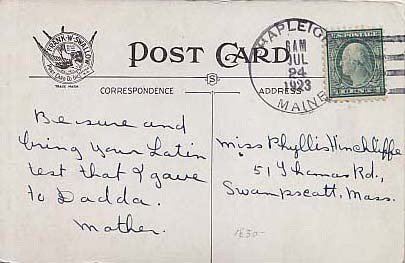 FRANK W. SWALLOW
POST CARD CO. INC.
TRADE MARK
POST CARD
MAPLEIG
6AM
JUL
24
1923
MAINE
S
CORRESPONDENCE
ADDRESS
Be sure and
bring your Latin
test that I gave
to Dadda.
Mother.
Miss Phyllis Hinchliffe
51 Thomas Rd.,
Swampscott, Mass.
1830-